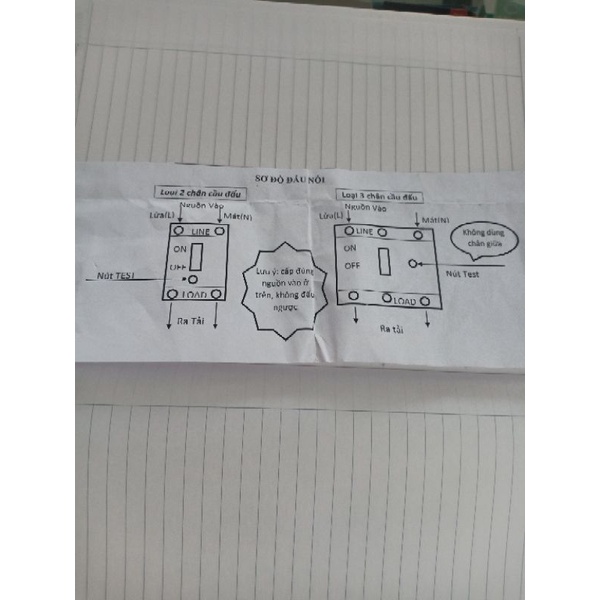 SƠ ĐỒ ĐẤU NỐI
Loại 2 chân cầu đấu
Nguồn Vào
Lửa(L)
Mát(N)
LINE
ON
OFF
Nút TEST
LOAD
Ra Tải
Lưu ý: cấp đúng
nguồn vào ở
trên, không đấu
ngược
Loại 3 chân cầu đấu
Nguồn Vào
Lửa(L)
Mát(N)
LINE
ON
OFF
Không dùng
chân giữa
Nút Test
LOAD
Ra tải